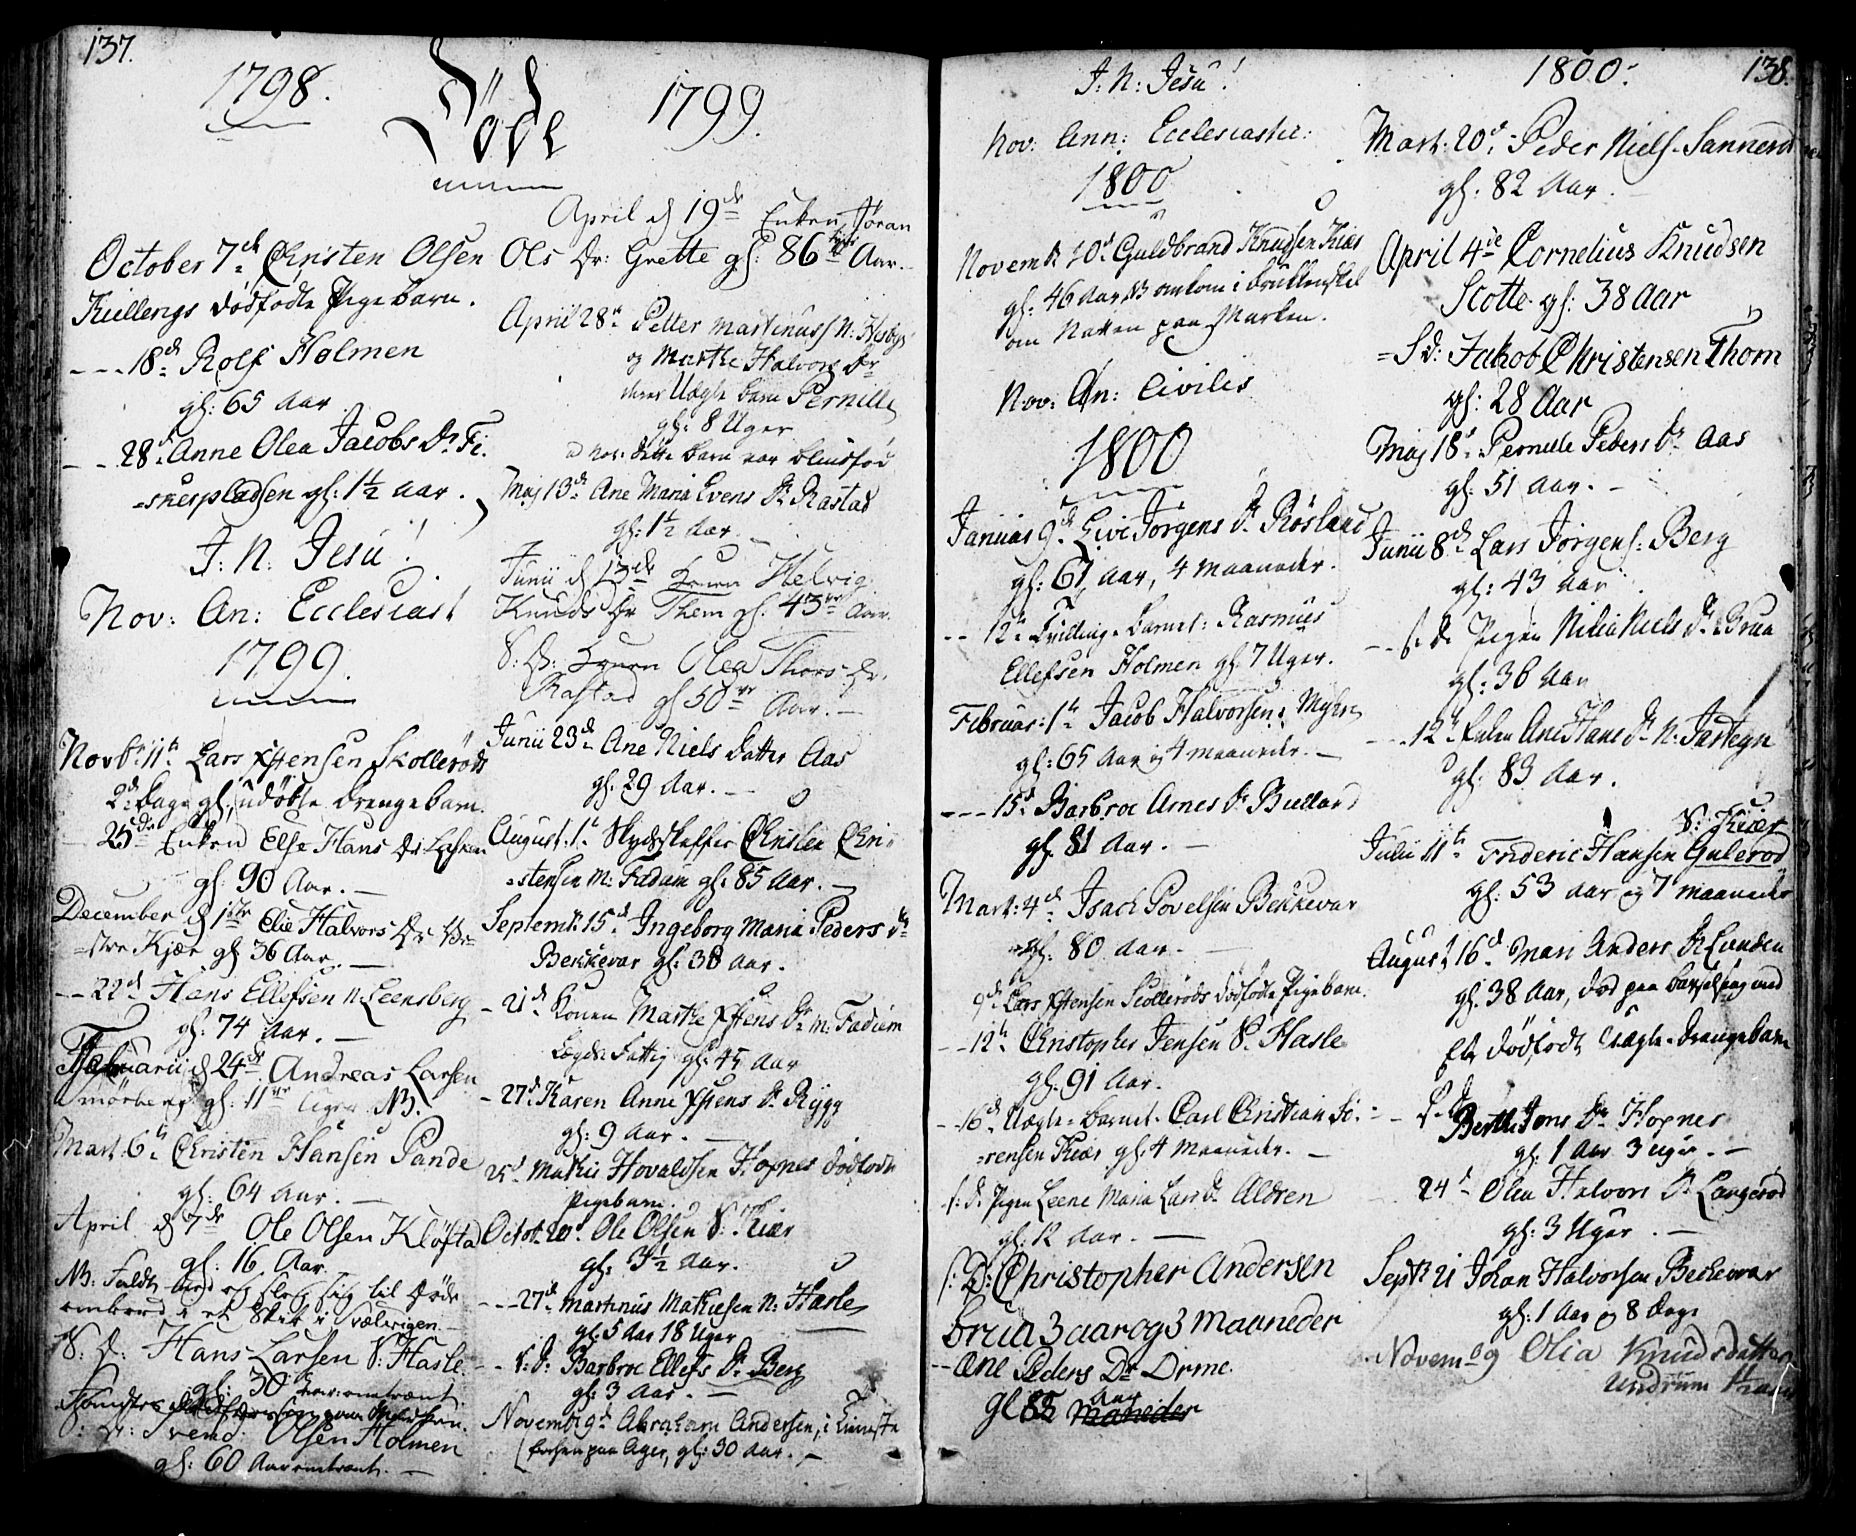 137.
1798.
Döde
1799.
October 7de Christen Olsen
Kullerøgs dødfødte Pigebarn.
- - - 18de Rolf Holmen
gl: 65 Aar
- - 28de Anne Olea Jacobs Dr Fi-
=skerpladsen gl: 1½ Aar.
J. N. Jesu!
Nov: An: Ecclesiast
1799.
Novbr 11te Lars Jensen Skollerøds
2de Dage gl: udøbte Drengebarn.
25de Enken Else Hans Dr
gl: 90 Aar. -
December d 1ste Elie Halvors Dr
Kjær gl: 36 Aar. -
- - 22de Hans Ellefsen N: Leensberg
gl: 74 Aar. -
Februarii d 24de Andreas Larsen
Smørberg gl: 11 Uger NB.
Mart: 6te Christen Hansen Pande
gl: 64 Aar. -
April d 7de Ole Olsen Kløfta
gl: 16 Aar.
NB: Faldt ned og slog sig til Døde
ombord i et Skib i Svælvigen
S: D: Hans Larsen S: Hasle
gl: 30 Aar omtrent
S: D: Svend Olsen Holmen
gl: 60 Aar omtrent. -
April d 19de Enken Jøran
Ols Dr: Grette gl: 86 Aar.
April 28de Petter Martinuss N: Hesbye
og Marthe Halvors Dr
deres Uægte barn Pernille
gl: 8 Uger
NB: dette barn var blindfød
Maj 13de Ane Maria Evens Dr Rastad
gl: 1½ Aar -
Junii d 13de Konen Helvig
Knuds Dr Them gl. 43 Aar.
S: D: Konen Olea Thors Dr.
Rastad gl 50 Aar. -
Junii 23de Ane Niels Datter Aas
gl: 29 Aar. -
August: 1te Skydskaffer Christen Chri-
=stensen M: Fadum gl: 85 Aar. -
Septemb: 15de Ingeborg Maria Peders Dr
Bekkevar gl: 38 Aar.
- 21de Konen Marthe Dr M: Fadum
Lægds Fattig gl: 45 Aar
- 27de Karen Anne Dr Rygg
gl: 9 Aar. -
25de Mathis Hovaldsen Hopnes dødfødte
Pigebarn.
Octob: 20de Ole Olsen S: Kiær
gl: 3½ Aar.
- - - 27de Martinus Mathisen N: Hasle
gl: 5 Aar 18 Uger
- - S: D: Barbroe Ellefs Dr Berg
gl: 3 Aar. -
Novemb 9de Abraham Andersen, i
paa Ager, gl: 30 Aar. -
138.
J: N: Jesu!
Nov: Ann: Ecclesiastic:
1800
Novemb 10de Guldbrand Knudsen Kiær
gl: 46 Aar NB omkom i Drukkenskab
om Natten paa Marken.
Nov: An: Civilis
1800
Januar 9de Live Jørgens Dr Røsland
gl: 67 Aar, 4 Maaneder.
- - 12te Tvilling-barnet: Rasmus
Ellefsen Holmen gl: 7 Uger.
Februar: 1te Jacob Halvorsen: Myhre
gl: 65 Aar og 4 Maaneder. -
- - - 15de Barbroe Arnes Dr Bulland
gl. 81 Aar. -
Mart: 4de Isach Povelsen Bekkevar
gl: 80 Aar. -
9de Lars Jensen Scollerøds dødfødte Pigebarn.
- - 12te Christopher Jensen S: Hasle
gl: 91 Aar.
- - 16de Uægte-barnet Carl Christian Sø-
=rensen Kiær gl: 4 Maaneder. -
S: D: Pigen Leene Maria Lars Dr Aldren
gl: 12 Aar. -
S: D: Christopher Andersen
brua 3 aar og 3 Maaneder
- - Ane Peders Dr Orme
gl 85 Aar
1800.
Mart: 20de Peder Niels. Sannerød
gl: 82 Aar.
April 4de Cornelius Knudsen
Scotte gl: 38 Aar
= S d: Jakob Christensen Thom
gl: 28 Aar
Maj 18de Pernille Peders Dr Aas
gl: 51 Aar. -
Junii 8de Lars Jørgens: Berg
gl: 43 Aar
- - S. D. Pigen Nilia Niels Dr Brua
gl: 36 Aar
- - - 12te Enken Ane Hans Dr N: Jartegn
gl: 83 Aar.
S: Kiær
Julii 11te Frideric Hansen Gulerød
gl: 53 Aar og 7 Maaneder
August 16de Mari Anders Dr Lunden
gl: 38 Aar, død paa barselseng med
Et dødfødt Uægte-Drengebarn
- S. D. Berthe Jons Dr Hopnes
gl: 1 Aar 3 Uger. -
24de Olea Halvors Dr Langerød
gl: 3 Uger. -
Septb 21 Johan Halvorsen Bechevar
gl: 1 Aar og 8 Dage
Novemb 9 Olia Knudsdatter
Undrum